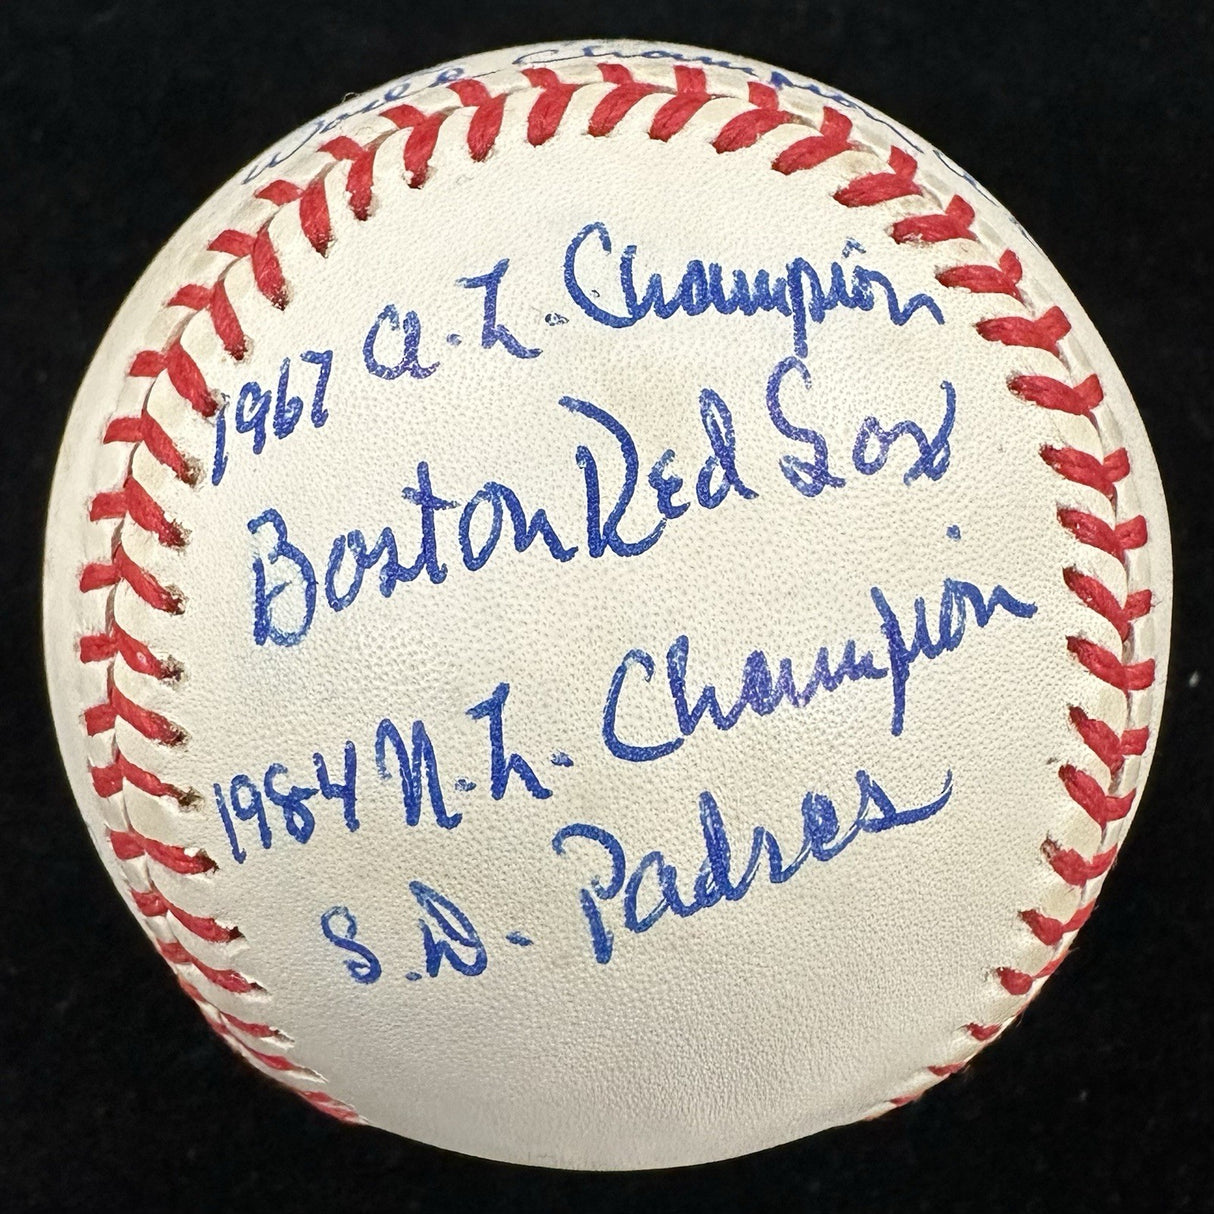 World Champion
1967 A.L. Champion
Boston Red Sox
1984 N.L. Champion
S.D. Padres